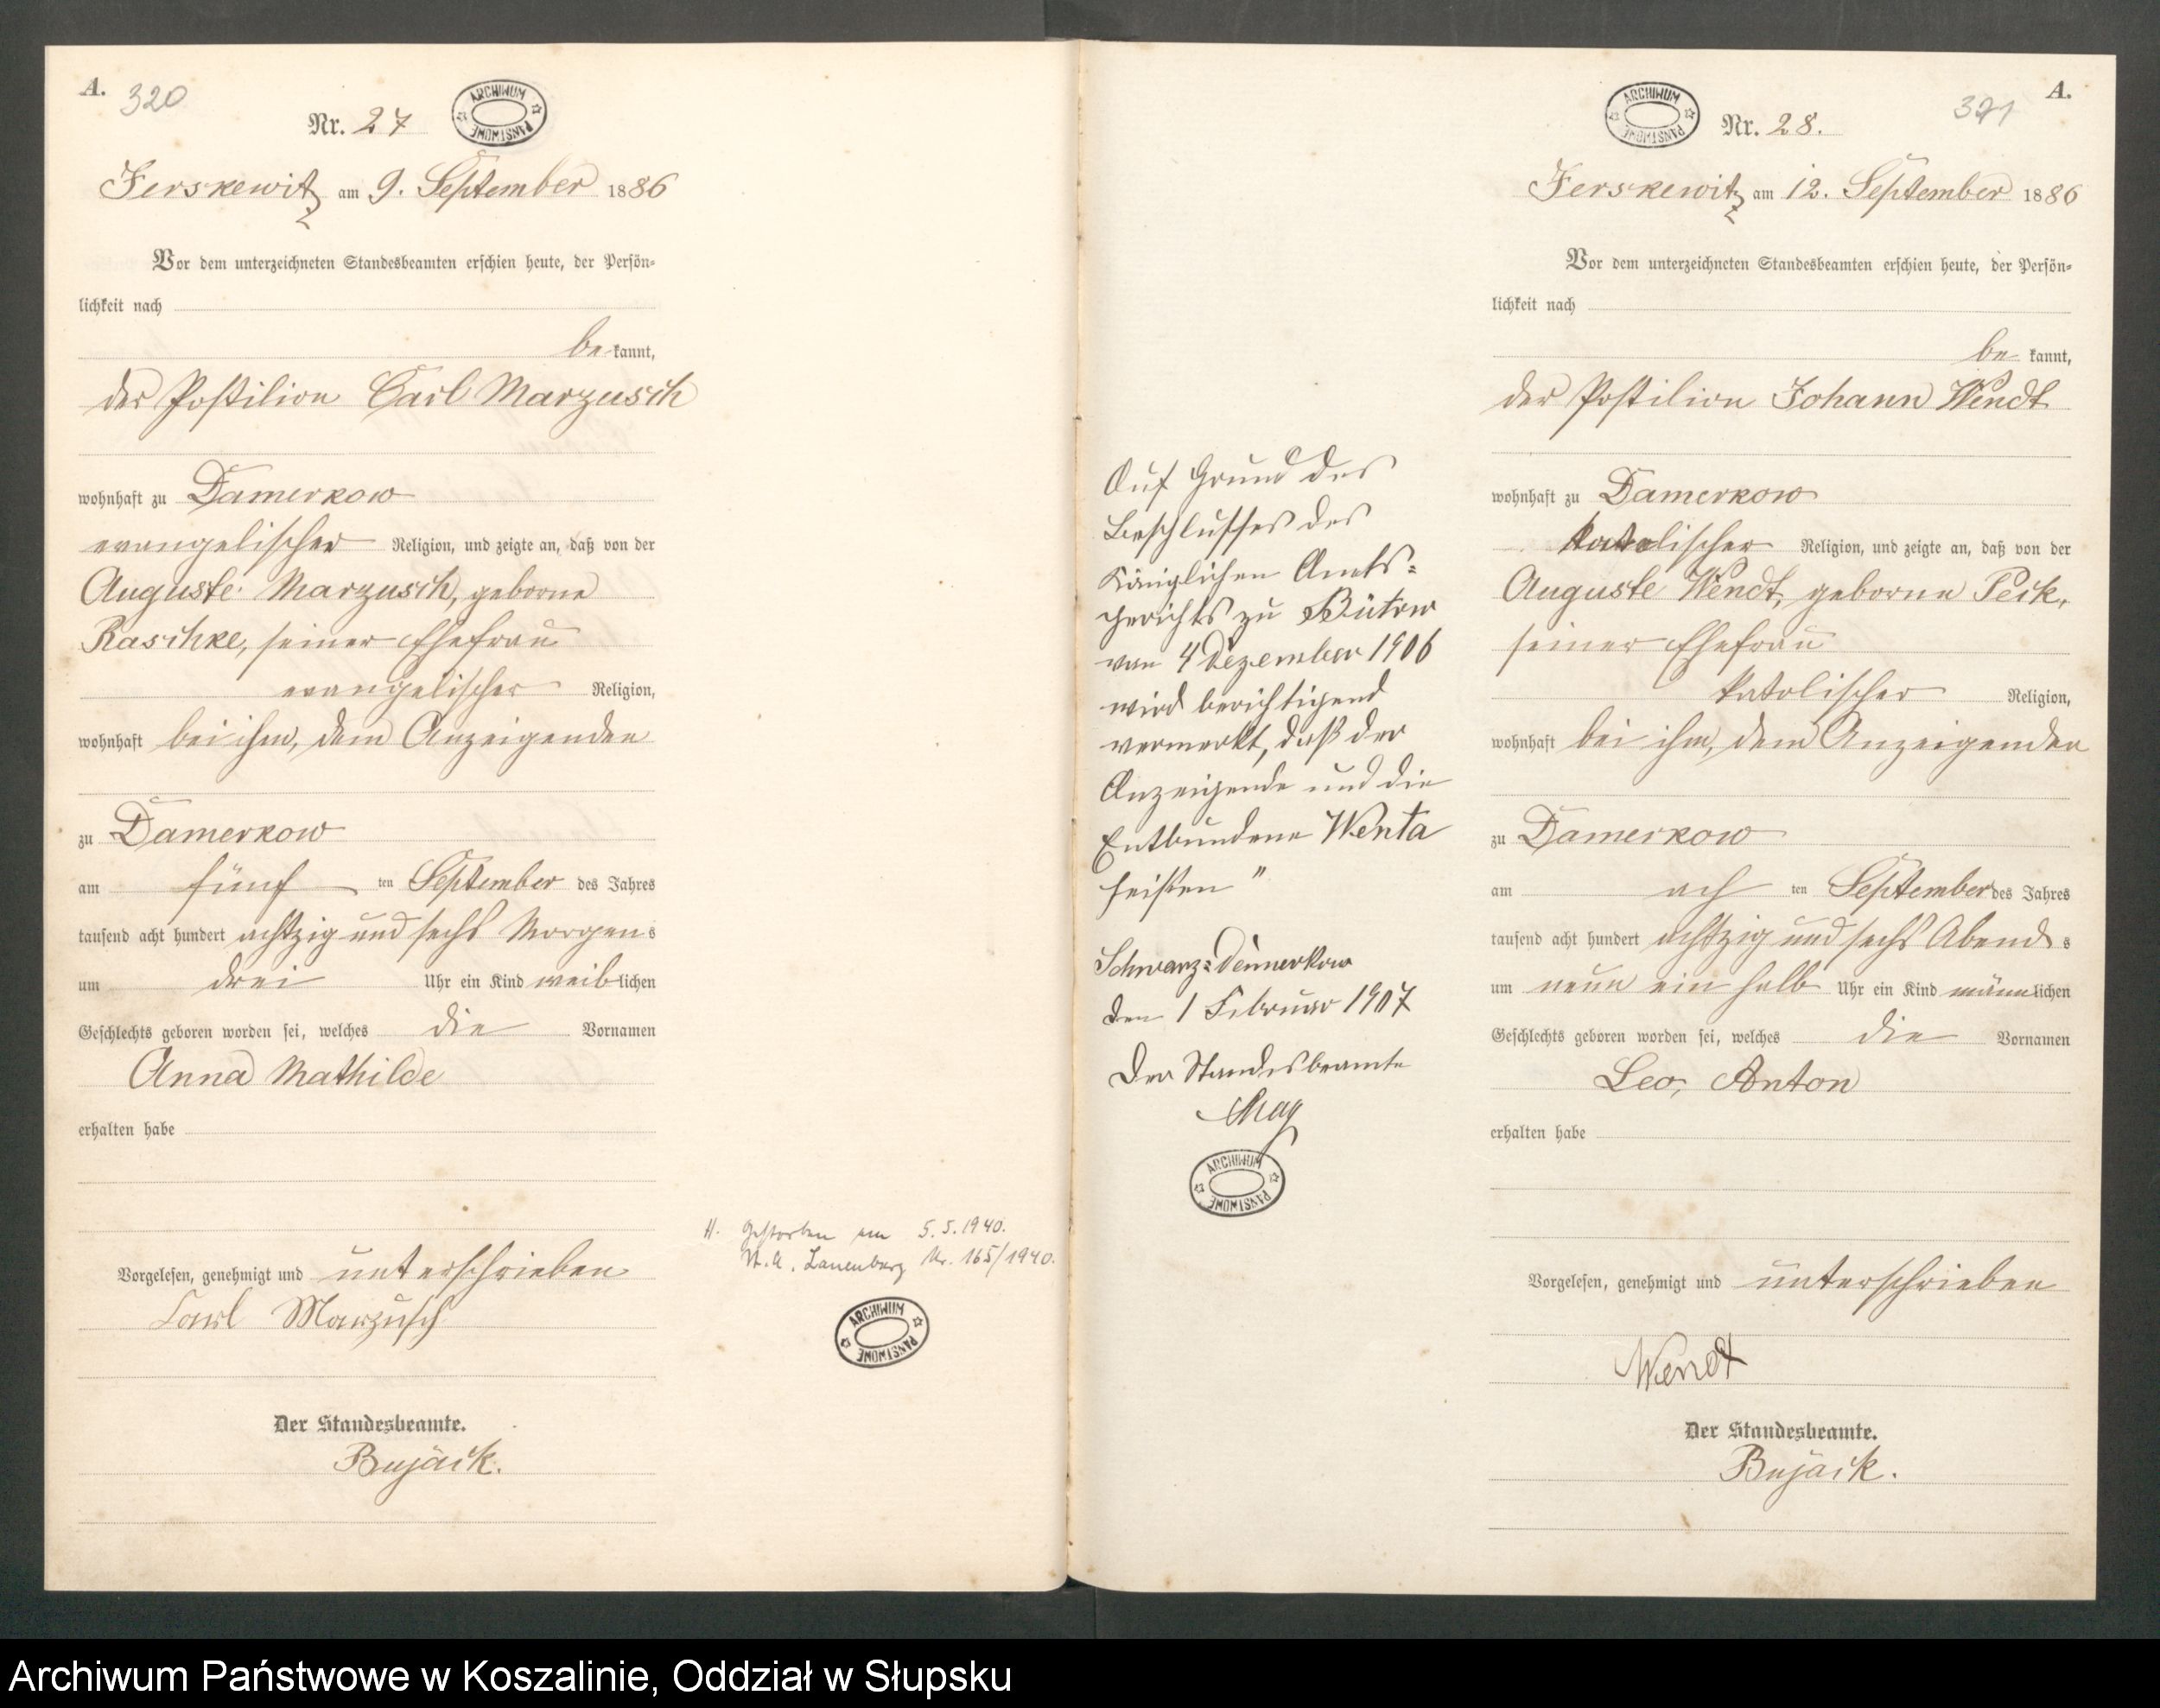 A. 320
ARCHIWUM PAŃSTWOWE
Nr. 27
Jerskewitz am 9. September 1886
Vor dem unterzeichneten Standesbeamten erschien heute, der Persön-
lichkeit nach
be kannt,
der Postilion Carl Marzusch
wohnhaft zu Damerkow
evangelischer Religion, und zeigte an, daß von der
Auguste Marzusch, geborne
Raschke, seiner Ehefrau
evangelischer Religion,
wohnhaft bei ihm, dem Anzeigenden
zu Damerkow
am fünf ten September des Jahres
tausend acht hundert achtzig und sechs Morgens
um drei Uhr ein Kind weiblichen
Geschlechts geboren worden sei, welches die Vornamen
Anna Mathilde
erhalten habe
Vorgelesen, genehmigt und unterschrieben
Carl Marzusch
Der Standesbeamte.
Bujack.
H. Gestorben am 5.5.1940.
St.A. Lauenburg Nr. 165/1940.
ARCHIWUM PAŃSTWOWE
Auf Grund des
Beschlusses des
Königlichen Amts-
gerichts zu Bütow
vom 4 Dezember 1906
wird berichtigend
vermerkt, daß der
Anzeigende und die
Entbundene Wenta
heißen"
Schwarz-Damerkow
den 1 Februar 1907
Der Standesbeamte
ARCHIWUM PAŃSTWOWE
A.
321
ARCHIWUM PAŃSTWOWE
Nr. 28.
Jerskewitz am 12. September 1886
Vor dem unterzeichneten Standesbeamten erschien heute, der Persön-
lichkeit nach
be kannt,
der Postilion Johann Wendt
wohnhaft zu Damerkow
katolischer Religion, und zeigte an, daß von der
Auguste Wendt, geborne Peik,
seiner Ehefrau
katolischer Religion,
wohnhaft bei ihm, dem Anzeigenden
zu Damerkow
am ach ten September des Jahres
tausend acht hundert achtzig und sechs Abends
um neun ein halb Uhr ein Kind männlichen
Geschlechts geboren worden sei, welches die Vornamen
Leo, Anton
erhalten habe
Vorgelesen, genehmigt und unterschrieben
Wendt
Der Standesbeamte.
Bujack.
Archiwum Państwowe w Koszalinie, Oddział w Słupsku